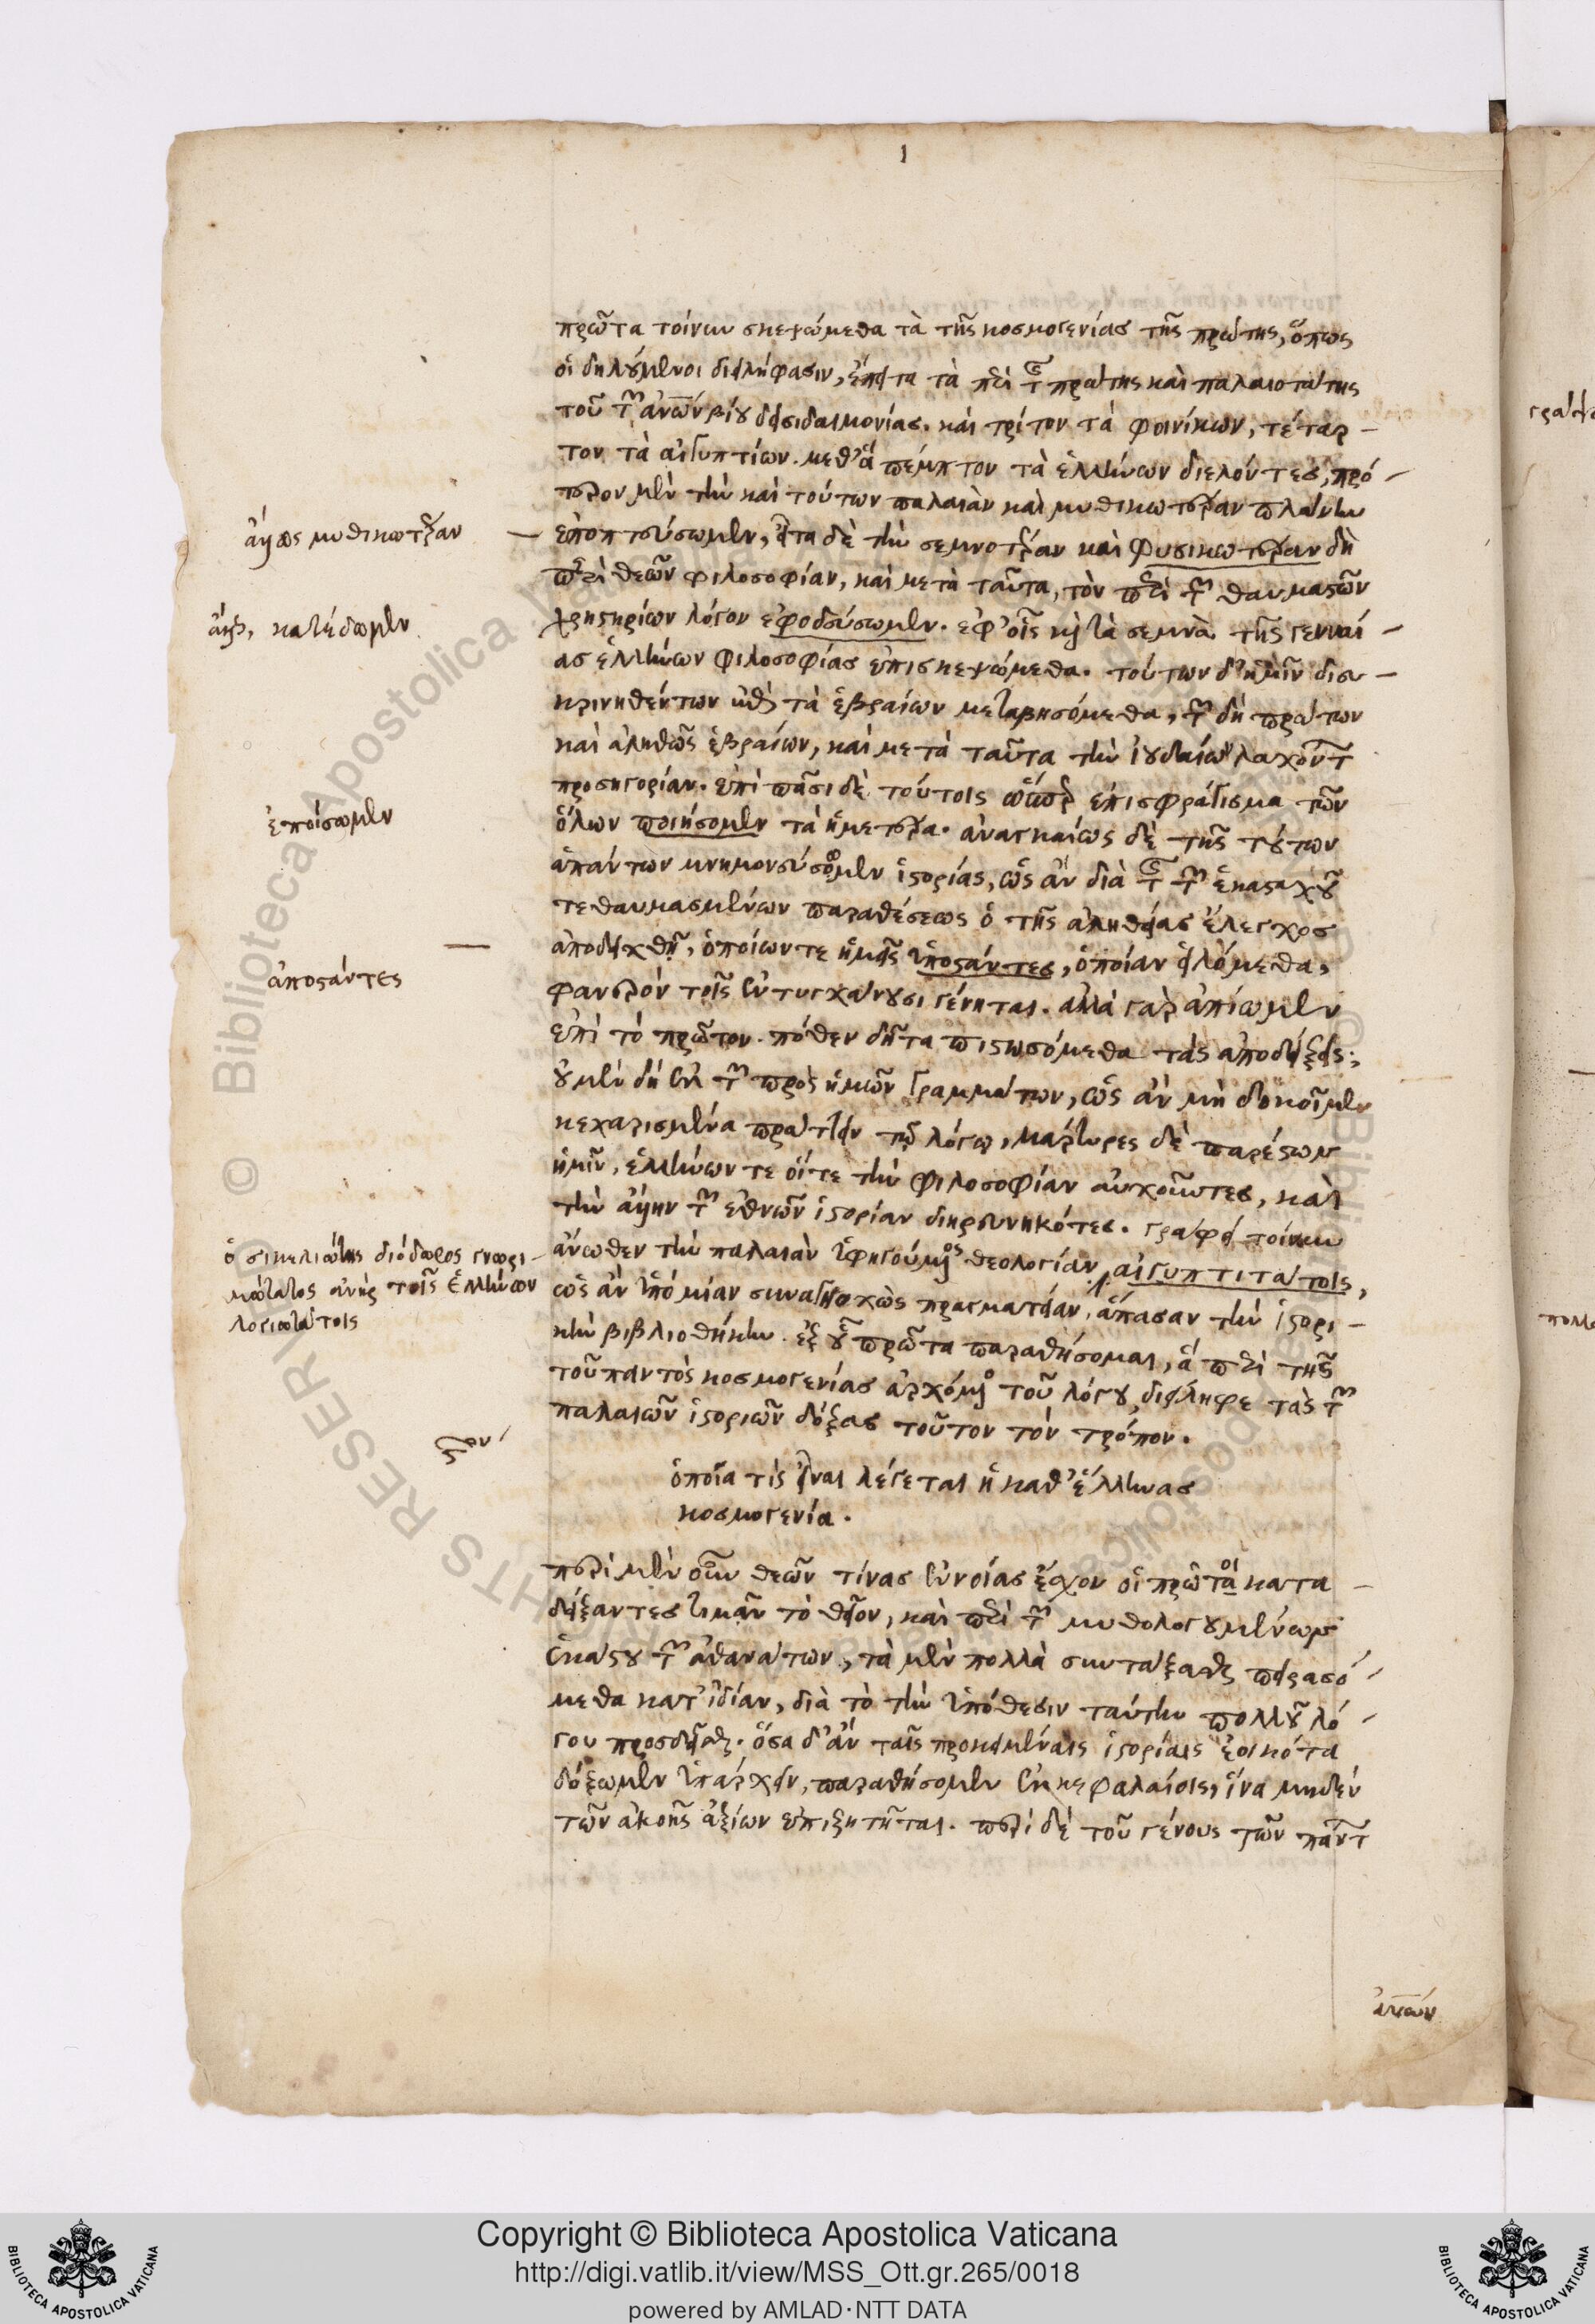 πρῶτα τοίνυν σκεψώμεθα τὰ τῆς κοσμογενίας τῆς πρώτης, ὅπως
οἱ δηλούμενοι διειλήφασιν, ἔπειτα τὰ περὶ τῆς πρώτης καὶ παλαιοτάτης
τοῦ τῶν ἀνων βίου δεισιδαιμονίας. καὶ τρίτον τὰ φοινίκων, τέταρ-
τον τὰ αἰγυπτίων. μεθ' ἃ πέμπτον τὰ ἑλλήνων διελόντες, πρό-
τερον μὲν τὴν καὶ τούτων παλαιὰν καὶ μυθικωτέραν πλάνην
ἄλλως μυθικωτέραν
ἐποπτεύσωμεν, εἶτα δὲ τὴν σεμνοτέραν καὶ φυσικωτέραν δὴ
περὶ θεῶν φιλοσοφίαν, καὶ μετὰ ταῦτα, τὸν περὶ τῶν θαυμαστῶν
κατίδωμεν
χρηστηρίων λόγον ἐφοδεύσωμεν. ἐφ' οἷς καὶ τὰ σεμνὰ τῆς γενναί-
ας ἑλλήνων φιλοσοφίας ἐπισκεψώμεθα. τούτων δ' ἡμῖν διευ-
κρινηθέντων ἐπὶ τὰ ἑβραίων μεταβησόμεθα, τῶν δὴ πρώτων
καὶ ἀληθῶς ἑβραίων, καὶ μετὰ ταῦτα τὴν ἰουδαίων λαχόντων
προσηγορίαν. ἐπὶ πᾶσι δὲ τούτοις ὥσπερ ἐπισφράγισμα τῶν
ἐποίσωμεν
ὅλων ποιήσομεν τὰ ἡμέτερα. ἀναγκαίως δὲ τῆς τούτων
ἁπάντων μνημονεύσομεν ἱστορίας, ὡς ἂν διὰ τῆς τῶν ἑκασταχοῦ
τεθαυμασμένων παραθέσεως ὁ τῆς ἀληθείας ἔλεγχος
ἀποδειχθῇ, ὁποίων τε ἡμεῖς ὑποστάντες, ὁποίαν εἱλόμεθα,
ἀποστάντες
φανερὸν τοῖς ἐντυγχάνουσι γένηται. ἀλλὰ γὰρ ἀπίωμεν
ἐπὶ τὸ πρῶτον. πόθεν δῆτα πιστωσόμεθα τὰς ἀποδείξεις;
οὐ μὲν δὴ ἐκ τῶν πρὸς ἡμῶν γραμμάτων, ὡς ἂν μὴ δοκοῖμεν
κεχαρισμένα πράττειν τῷ λόγῳ, μάρτυρες δὲ παρέστων
ἡμῖν, ἑλλήνων τε οἵ τε τὴν φιλοσοφίαν αὐχοῦντες, καὶ
τὴν ἄλλην τῶν ἐθνῶν ἱστορίαν διηρευνηκότες. γράφει τοίνυν
ἄνωθεν τὴν παλαιὰν ὑφηγούμενος θεολογίαν αἰγυπτιτάτοις,
ὁ σικελιώτης διόδωρος γνωρι-
μώτατος ἀνὴρ τοῖς ἑλλήνων
λογιωτάτοις
ὡς ἂν ὑπὸ μίαν συναγηοχὼς πραγματείαν, ἅπασαν τὴν ἱστορι-
κὴν βιβλιοθήκην. ἐξ οὗ πρῶτα παραθήσομαι, ἃ περὶ τῆς
τοῦ παντὸς κοσμογενίας ἀρχόμενος τοῦ λόγου, διείληφε τὰς τῶν
παλαιῶν ἱστοριῶν δόξας τοῦτον τὸν τρόπον.
ὁποία τὶς εἶναι λέγεται ἡ καθ' ἕλληνας
κοσμογενία.
περὶ μὲν οὖν θεῶν τίνας ἐννοίας ἔσχον οἱ πρῶτοι κατα-
δείξαντες τιμᾶν τὸ θεῖον, καὶ περὶ τῶν μυθολογουμένων
ἑκάστου τῶν ἀθανάτων, τὰ μὲν πολλὰ συντάξασθαι πειρασό-
μεθα κατ' ἰδίαν, διὰ τὸ τὴν ὑπόθεσιν ταύτην πολλοῦ λό-
γου προσδεῖσθαι. ὅσα δ' ἂν ταῖς προκειμέναις ἱστορίαις ἐοικότα
δόξωμεν ὑπάρχειν, παραθήσομεν ἐν κεφαλαίοις, ἵνα μηδὲν
τῶν ἀκοῆς ἀξίων ἐπιζητῆται. περὶ δὲ τοῦ γένους τῶν πάντων
Copyright © Biblioteca Apostolica Vaticana
http://digi.vatlib.it/view/MSS_Ott.gr.265/0018
powered by AMLAD·NTT DATA